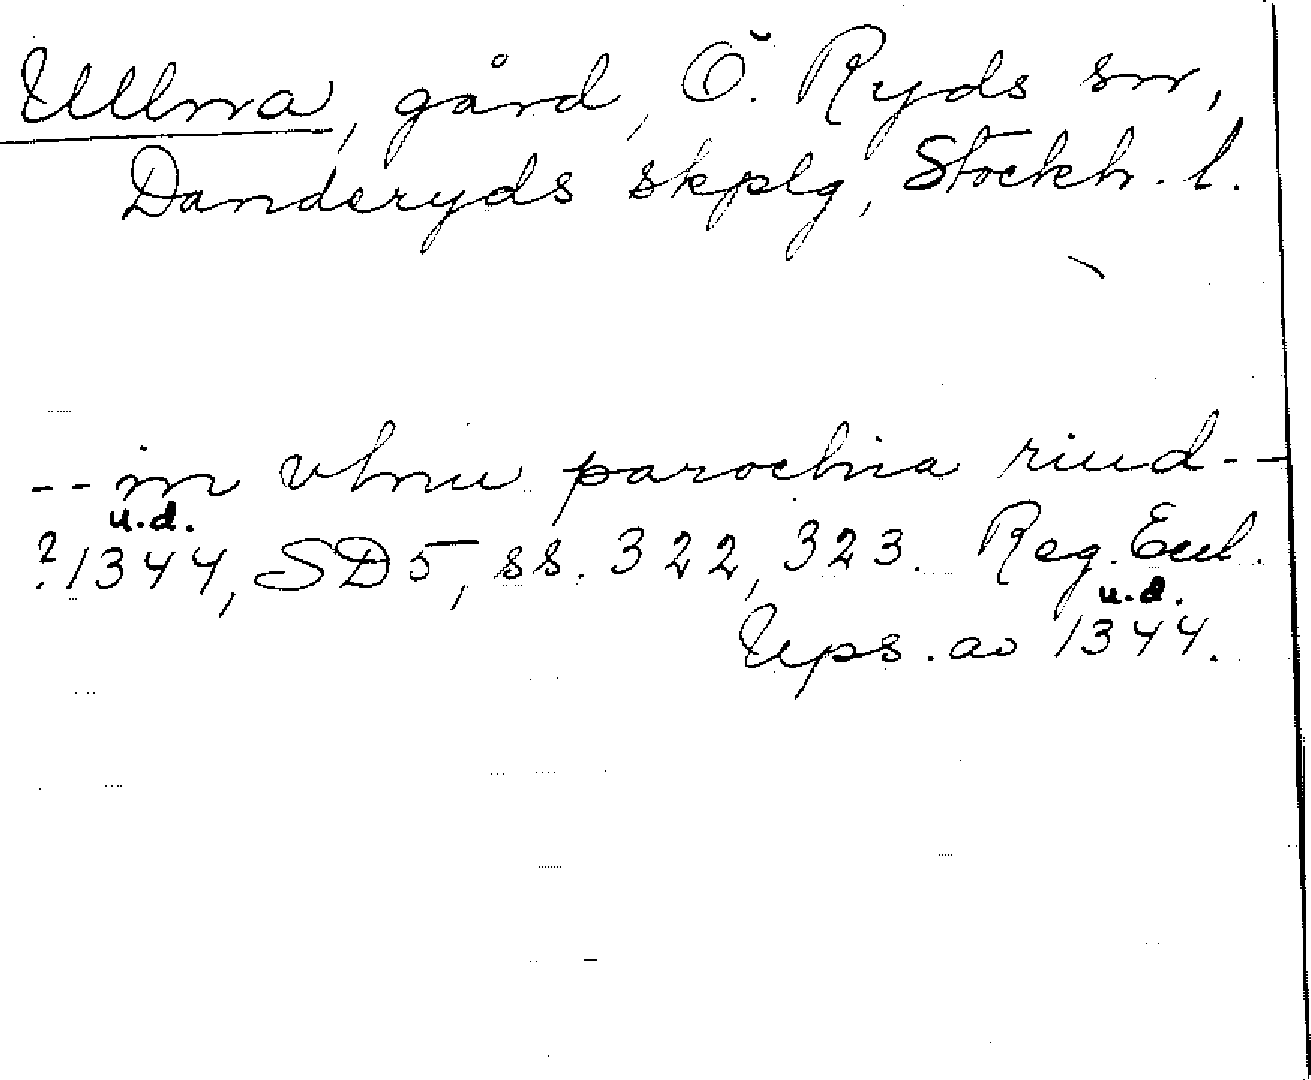 Ullna, gård, Ö. Ryds sn,
Danderyds skplg, Stockh. l.
-- in vlnu parochia riud --
u.d.
?1344, SD5, ss. 322, 323. Reg. Eccl.
u.d.
Ups. av 1344.